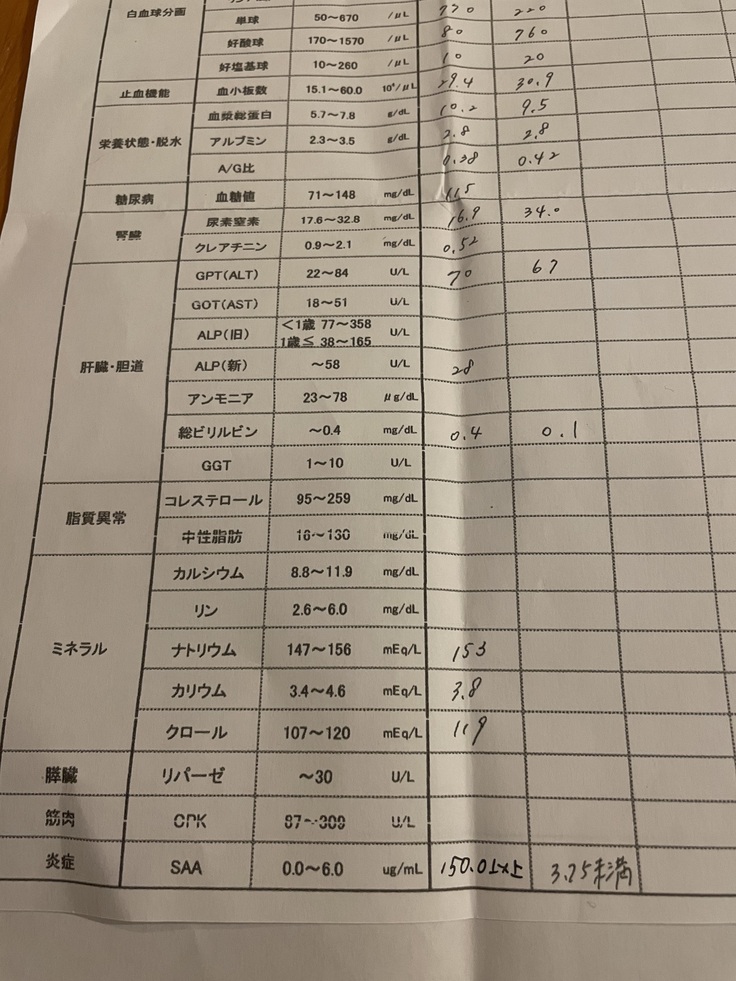 白血球分画
単球 50～670 /μL 770 220
好酸球 170～1570 /μL 80 760
好塩基球 10～260 /μL 10 20
止血機能 血小板数 15.1～60.0 10⁴/μL 29.4 30.9
栄養状態・脱水 血漿総蛋白 5.7～7.8 g/dL 10.2 9.5
アルブミン 2.3～3.5 g/dL 2.8 2.8
A/G比 0.38 0.42
糖尿病 血糖値 71～148 mg/dL 115
腎臓 尿素窒素 17.6～32.8 mg/dL 16.9 34.0
クレアチニン 0.9～2.1 mg/dL 0.52
肝臓・胆道 GPT(ALT) 22～84 U/L 70 67
GOT(AST) 18～51 U/L
ALP(旧) <1歳 77～358 U/L
1歳≦ 38～165
ALP(新) ～58 U/L 28
アンモニア 23～78 μg/dL
総ビリルビン ～0.4 mg/dL 0.4 0.1
GGT 1～10 U/L
脂質異常 コレステロール 95～259 mg/dL
中性脂肪 16～130 mg/dL
ミネラル カルシウム 8.8～11.9 mg/dL
リン 2.6～6.0 mg/dL
ナトリウム 147～156 mEq/L 153
カリウム 3.4～4.6 mEq/L 3.8
クロール 107～120 mEq/L 119
膵臓 リパーゼ ～30 U/L
筋肉 CPK 87～309 U/L
炎症 SAA 0.0～6.0 ug/mL 150.0以上 3.75未満